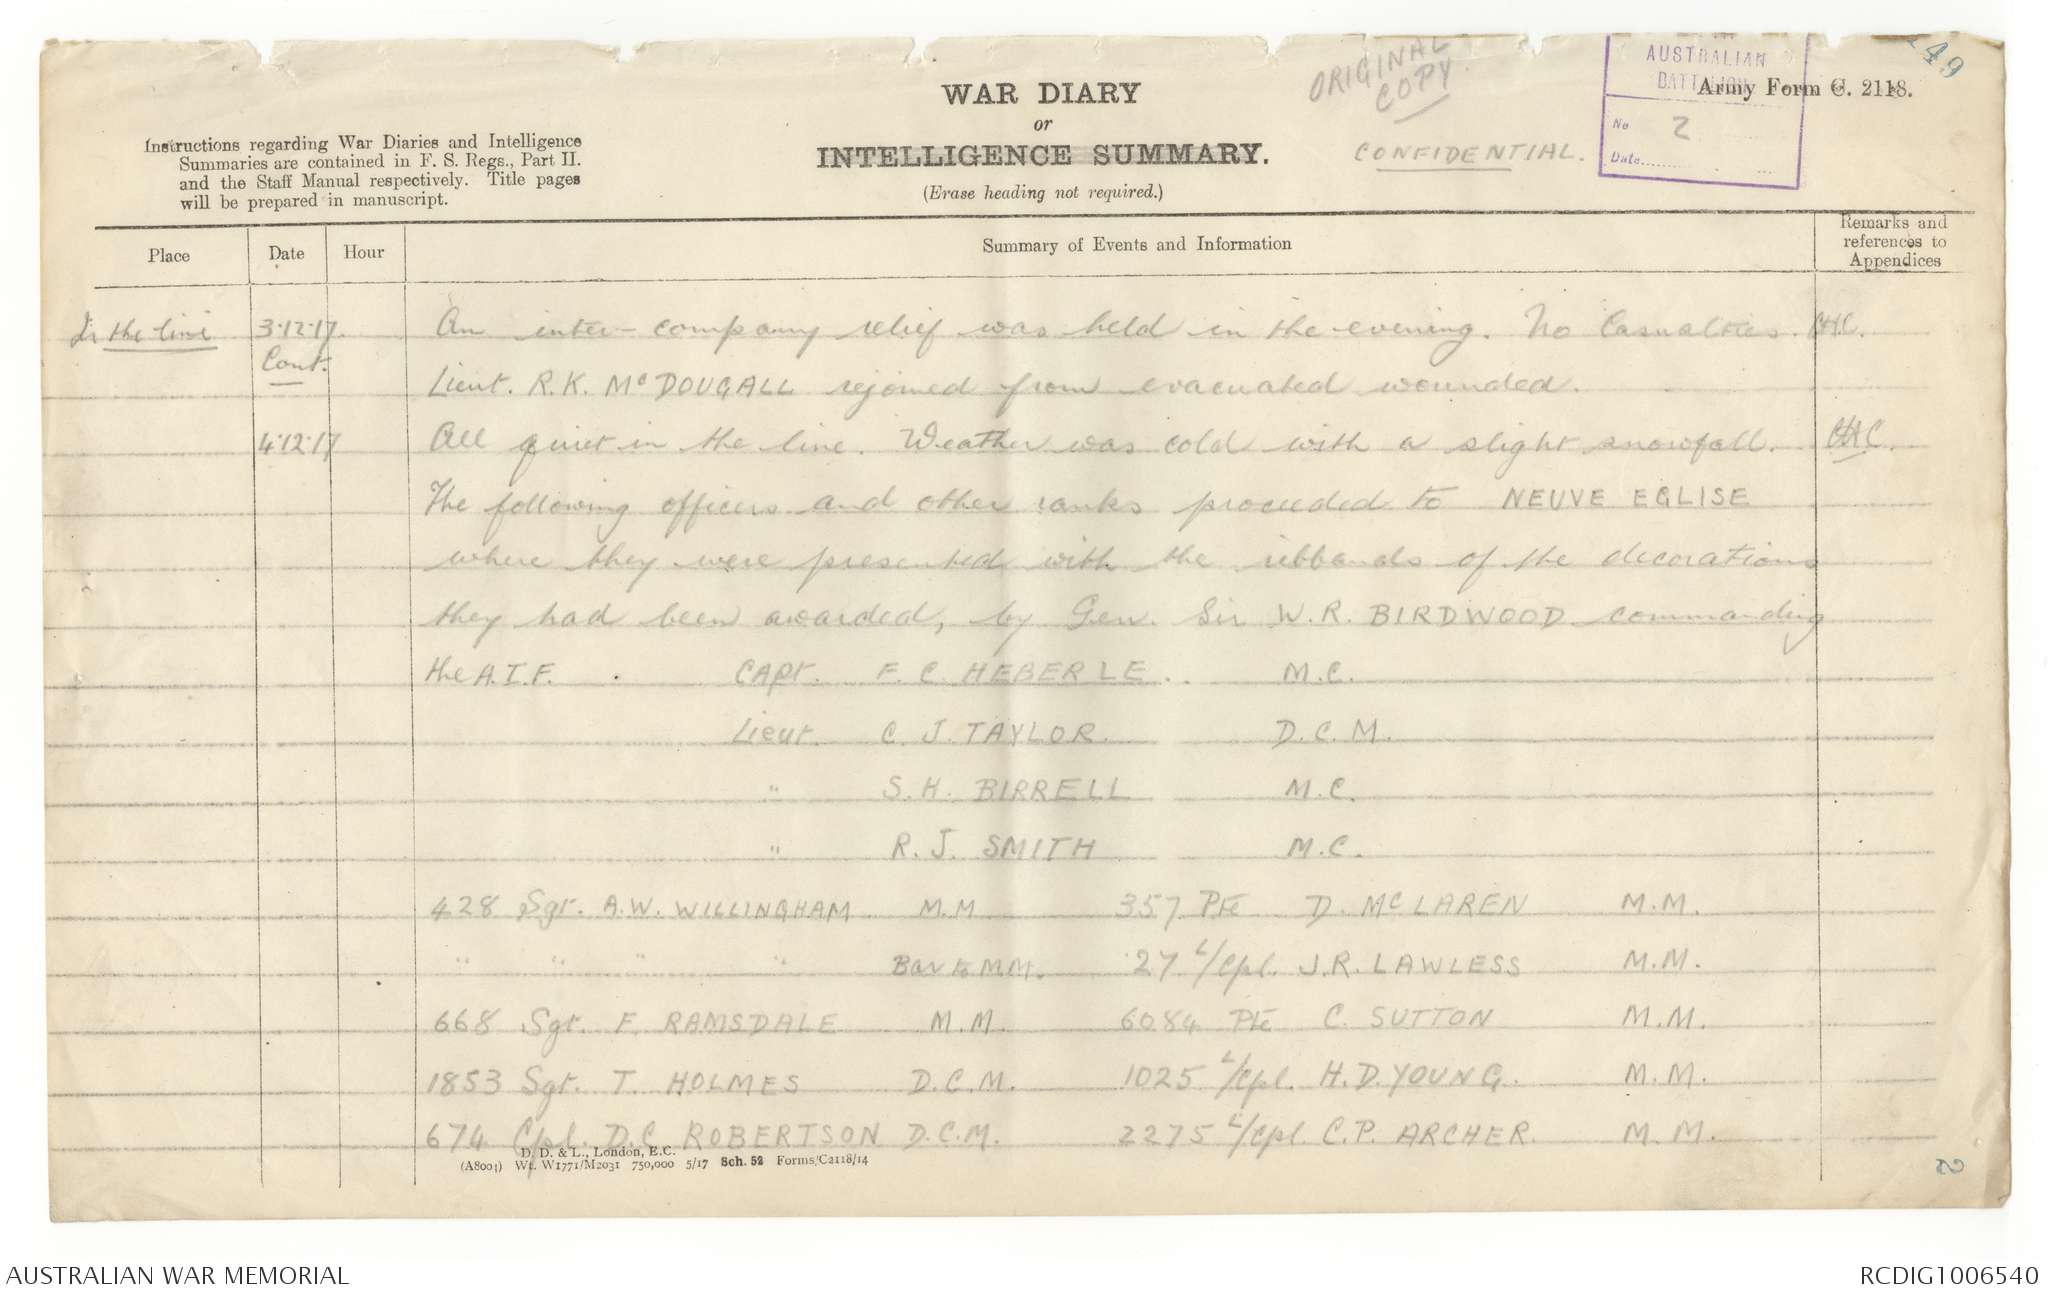 ORIGINAL
COPY
AUSTRALIAN
BATTALION
No 2
Date
49
WAR DIARY
or
INTELLIGENCE SUMMARY.
(Erase heading not required.)
CONFIDENTIAL.
Army Form C. 2118.
Instructions regarding War Diaries and Intelligence
Summaries are contained in F. S. Regs., Part II.
and the Staff Manual respectively. Title pages
will be prepared in manuscript.
Place Date Hour Summary of Events and Information Remarks and references to Appendices
In the line 3.12.17. An inter-company relief was held in the evening. No Casualties.
Cont.
Lieut. R.K. McDOUGALL rejoined from evacuated wounded.
4.12.17 All quiet in the line. Weather was cold with a slight snowfall.
The following officers and other ranks proceeded to NEUVE EGLISE
where they were presented with the ribbands of the decorations
they had been awarded, by Gen. Sir W.R. BIRDWOOD commanding
the A.I.F. Capt. F. C. HEBERLE. M.C.
Lieut C. J. TAYLOR. D.C.M.
" S. H. BIRRELL M.C.
" R. J. SMITH M.C.
428 Sgt. A.W. WILLINGHAM M.M 357 Pte D. McLAREN M.M.
" " " " Bar to M.M. 27 L/Cpl. J.R. LAWLESS M.M.
668 Sgt. F. RAMSDALE M.M. 6084 Pte C. SUTTON M.M.
1853 Sgt. T. HOLMES D.C.M. 1025 L/Cpl. H.D. YOUNG. M.M.
674 Cpl. D.C. ROBERTSON D.C.M. 2275 L/Cpl. C.P. ARCHER. M.M.
D. D. & L., London, E.C.
(A8004) Wt. W1771/M2031 750,000 5/17 Sch. 52 Forms/C2118/14
2
AUSTRALIAN WAR MEMORIAL
RCDIG1006540